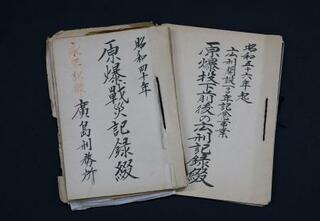 昭和五十六年起
広刑開設百年記念事業
原爆投下前後の広刑記録綴
昭和四十年
原爆戰災記録綴
廣島刑務所